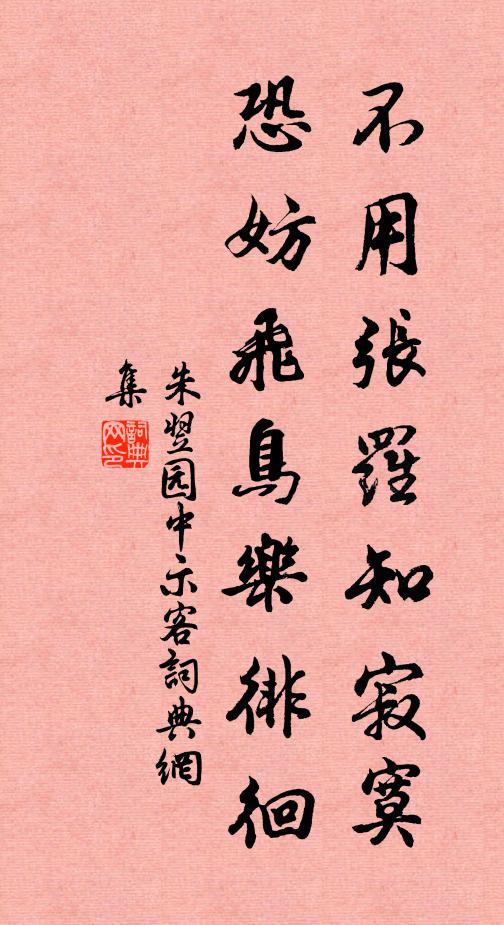 不用張羅知寂寞
恐妨飛鳥樂徘徊
朱翌园中示客詞典網
集
詞典
网印